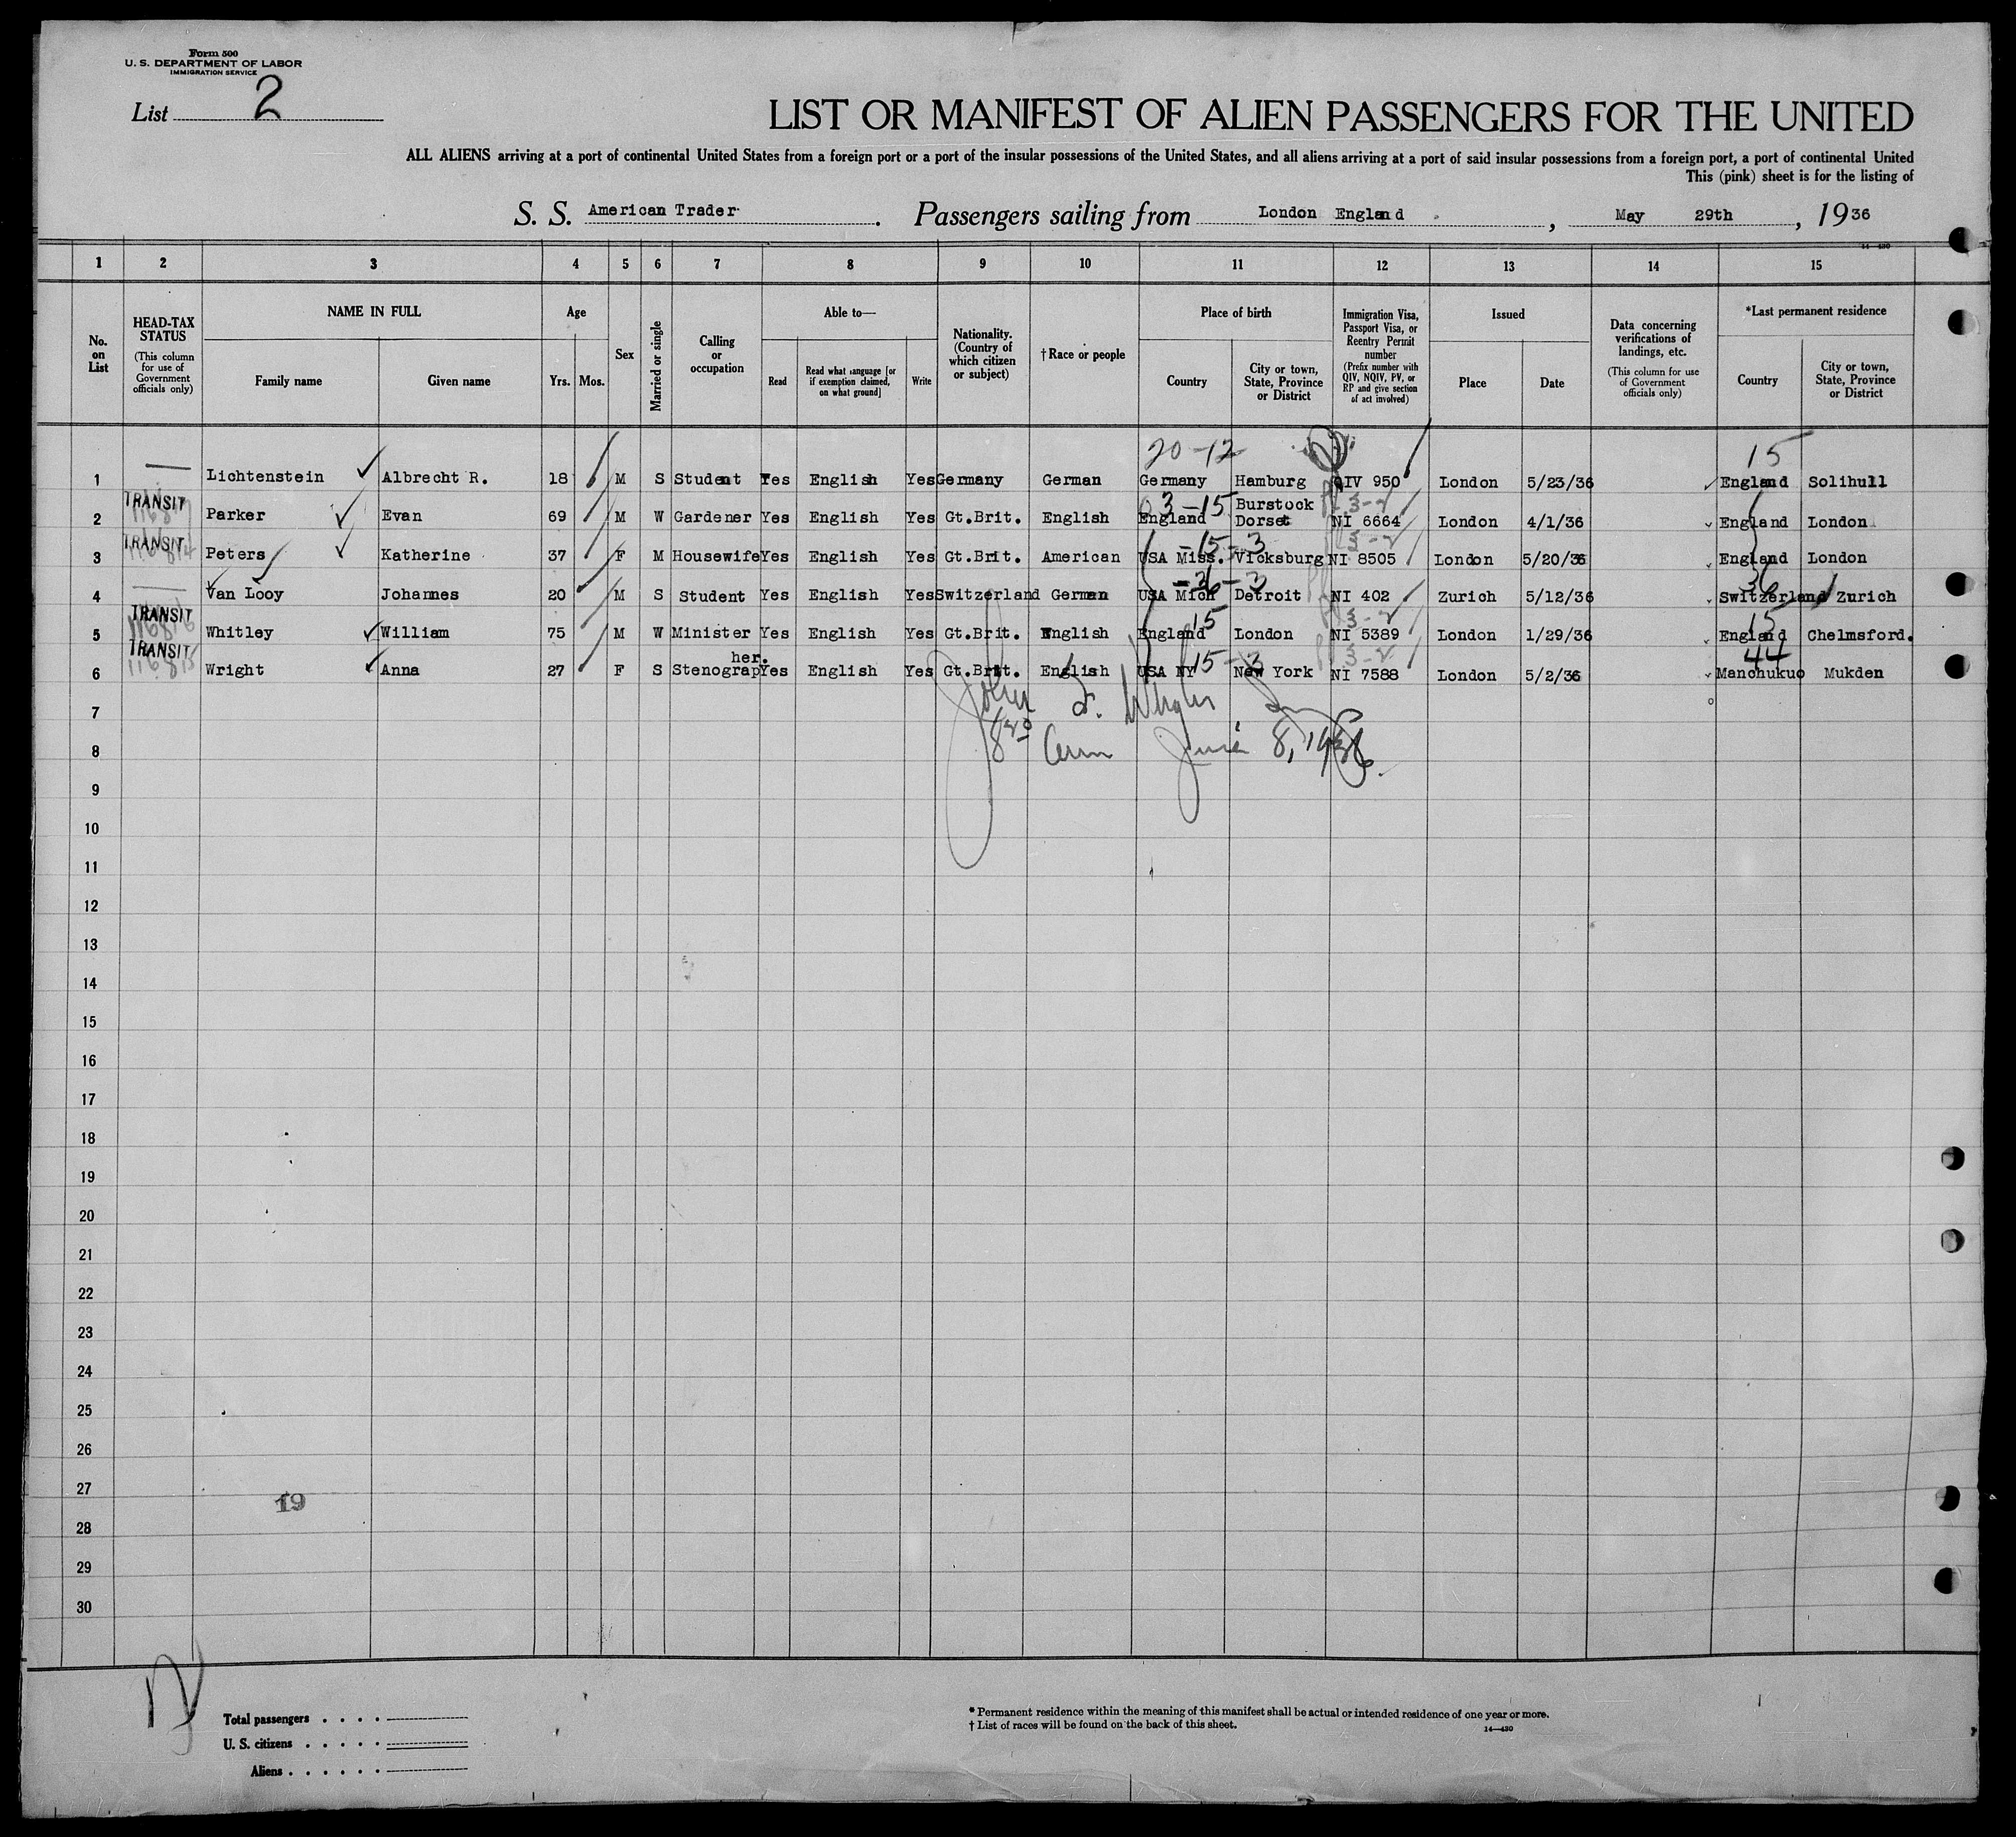 Form 500
U. S. DEPARTMENT OF LABOR
IMMIGRATION SERVICE
List 2
LIST OR MANIFEST OF ALIEN PASSENGERS FOR THE UNITED
ALL ALIENS arriving at a port of continental United States from a foreign port or a port of the insular possessions of the United States, and all aliens arriving at a port of said insular possessions from a foreign port, a port of continental United
This (pink) sheet is for the listing of
S. S. American Trader. Passengers sailing from London England, May 29th, 1936
14—430
1 2 3 4 5 6 7 8 9 10 11 12 13 14 15
No. on List
HEAD-TAX STATUS (This column for use of Government officials only)
NAME IN FULL
Family name Given name
Age
Yrs. Mos.
Sex
Married or single
Calling or occupation
Able to—
Read Read what language [or if exemption claimed, on what ground] Write
Nationality. (Country of which citizen or subject)
†Race or people
Place of birth
Country City or town, State, Province or District
Immigration Visa, Passport Visa, or Reentry Permit number (Prefix number with QIV, NQIV, PV, or RP and give section of act involved)
Issued
Place Date
Data concerning verifications of landings, etc. (This column for use of Government officials only)
*Last permanent residence
Country City or town, State, Province or District
20-12 15
1 Lichtenstein Albrecht R. 18 M S Student Yes English Yes Germany German Germany Hamburg QIV 950 London 5/23/36 England Solihull
TRANSIT 3-15 Burstock 3-2
2 Parker Evan 69 M W Gardener Yes English Yes Gt.Brit. English England Dorset NI 6664 London 4/1/36 England London
TRANSIT -15-3 3-2
3 Peters Katherine 37 F M Housewife Yes English Yes Gt.Brit. American USA Miss. Vicksburg NI 8505 London 5/20/36 England London
-36-3 36
4 Van Looy Johannes 20 M S Student Yes English Yes Switzerland German USA Mich Detroit NI 402 Zurich 5/12/36 Switzerland Zurich
TRANSIT 15 3-2 15
5 Whitley William 75 M W Minister Yes English Yes Gt.Brit. English England London NI 5389 London 1/29/36 England Chelmsford.
TRANSIT her. 15-3 3-2 44
6 Wright Anna 27 F S Stenograp Yes English Yes Gt.Brit. English USA NY New York NI 7588 London 5/2/36 Manchukuo Mukden
7 John
8 June 8, 1936.
9
10
11
12
13
14
15
16
17
18
19
20
21
22
23
24
25
26
27
19
28
29
30
Total passengers
U. S. citizens
Aliens
* Permanent residence within the meaning of this manifest shall be actual or intended residence of one year or more.
† List of races will be found on the back of this sheet.
14—430